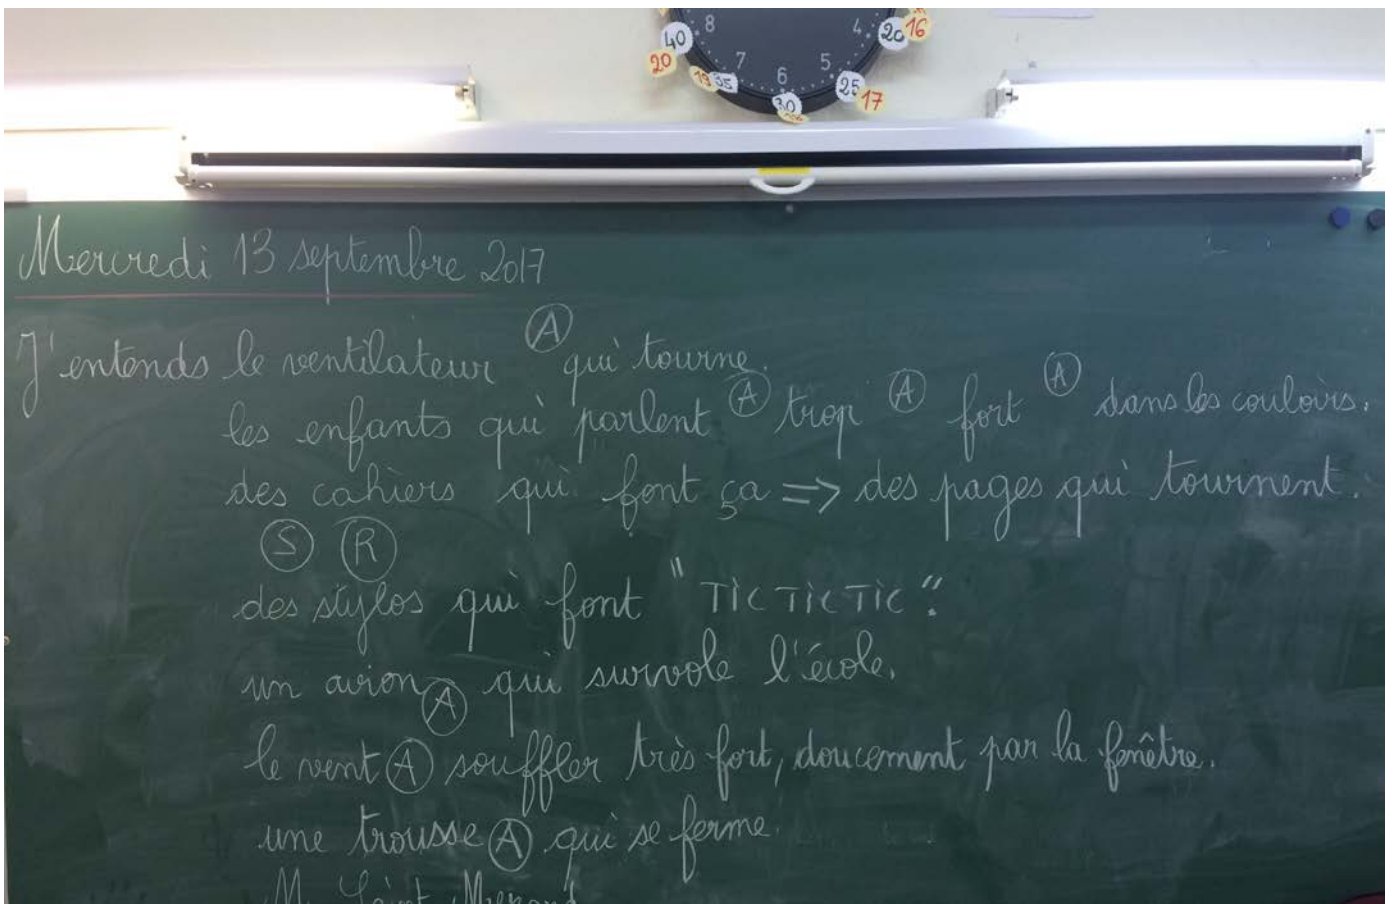 8 7 6 5 4
40 20 19 35 30 25 17 20 16
Mercredi 13 septembre 2017
J'entends le ventilateur Ⓐ qui tourne.
les enfants qui parlent Ⓐ trop Ⓐ fort Ⓐ dans les couloirs.
des cahiers qui font ça => des pages qui tournent.
Ⓢ Ⓡ
des stylos qui font "TIC TIC TIC".
un avion Ⓐ qui survole l'école.
le vent Ⓐ souffler très fort, doucement par la fenêtre.
une trousse Ⓐ qui se ferme.
M. Saint